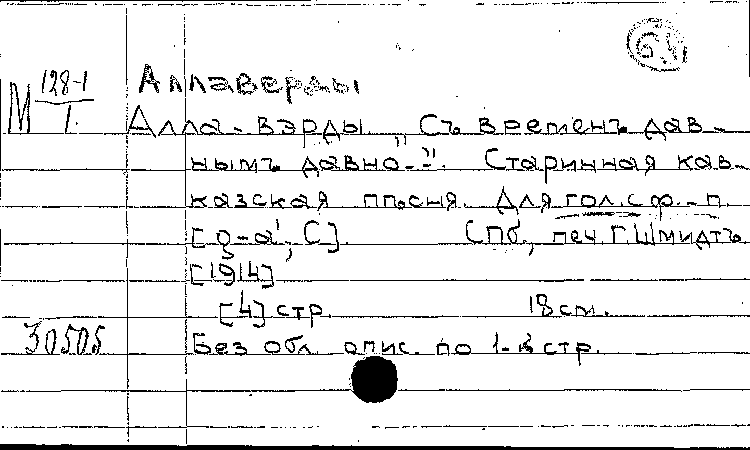 М 128-1/1.
Аллаверды
Алла-вэрды „Съ временъ дав-
нымъ давно..." Старинная кав-
казская пѣсня. Для гол. с ф.-п.
[g-a', C]. Спб., печ. Г. Шмидтъ
[1914]
[4] стр. 18 см.
30505
Без обл. опис. по 1-й стр.